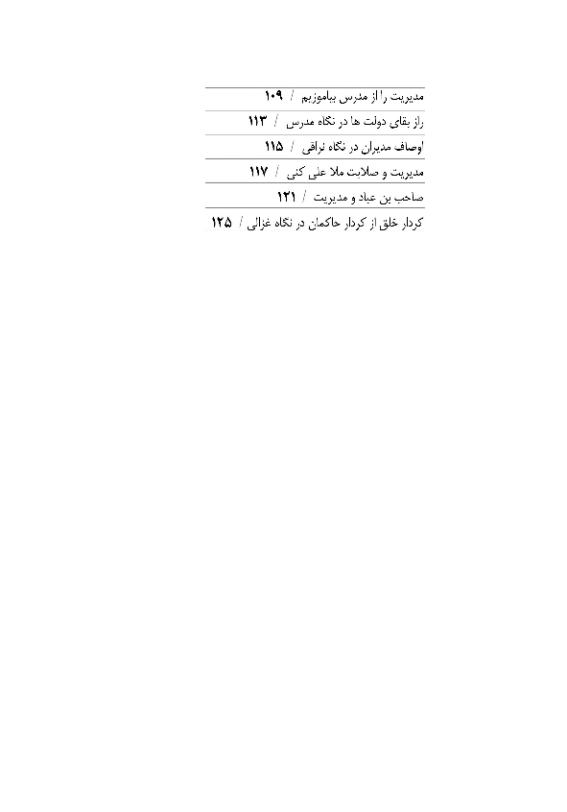 مدیریت را از مدرس بیاموزیم / ۱۰۹
راز بقای دولت ها در نگاه مدرس / ۱۱۳
اوصاف مدیران در نگاه نراقی / ۱۱۵
مدیریت و صلابت ملا علی کنی / ۱۱۷
صاحب بن عباد و مدیریت / ۱۲۱
کردار خلق از کردار حاکمان در نگاه غزالی / ۱۲۵